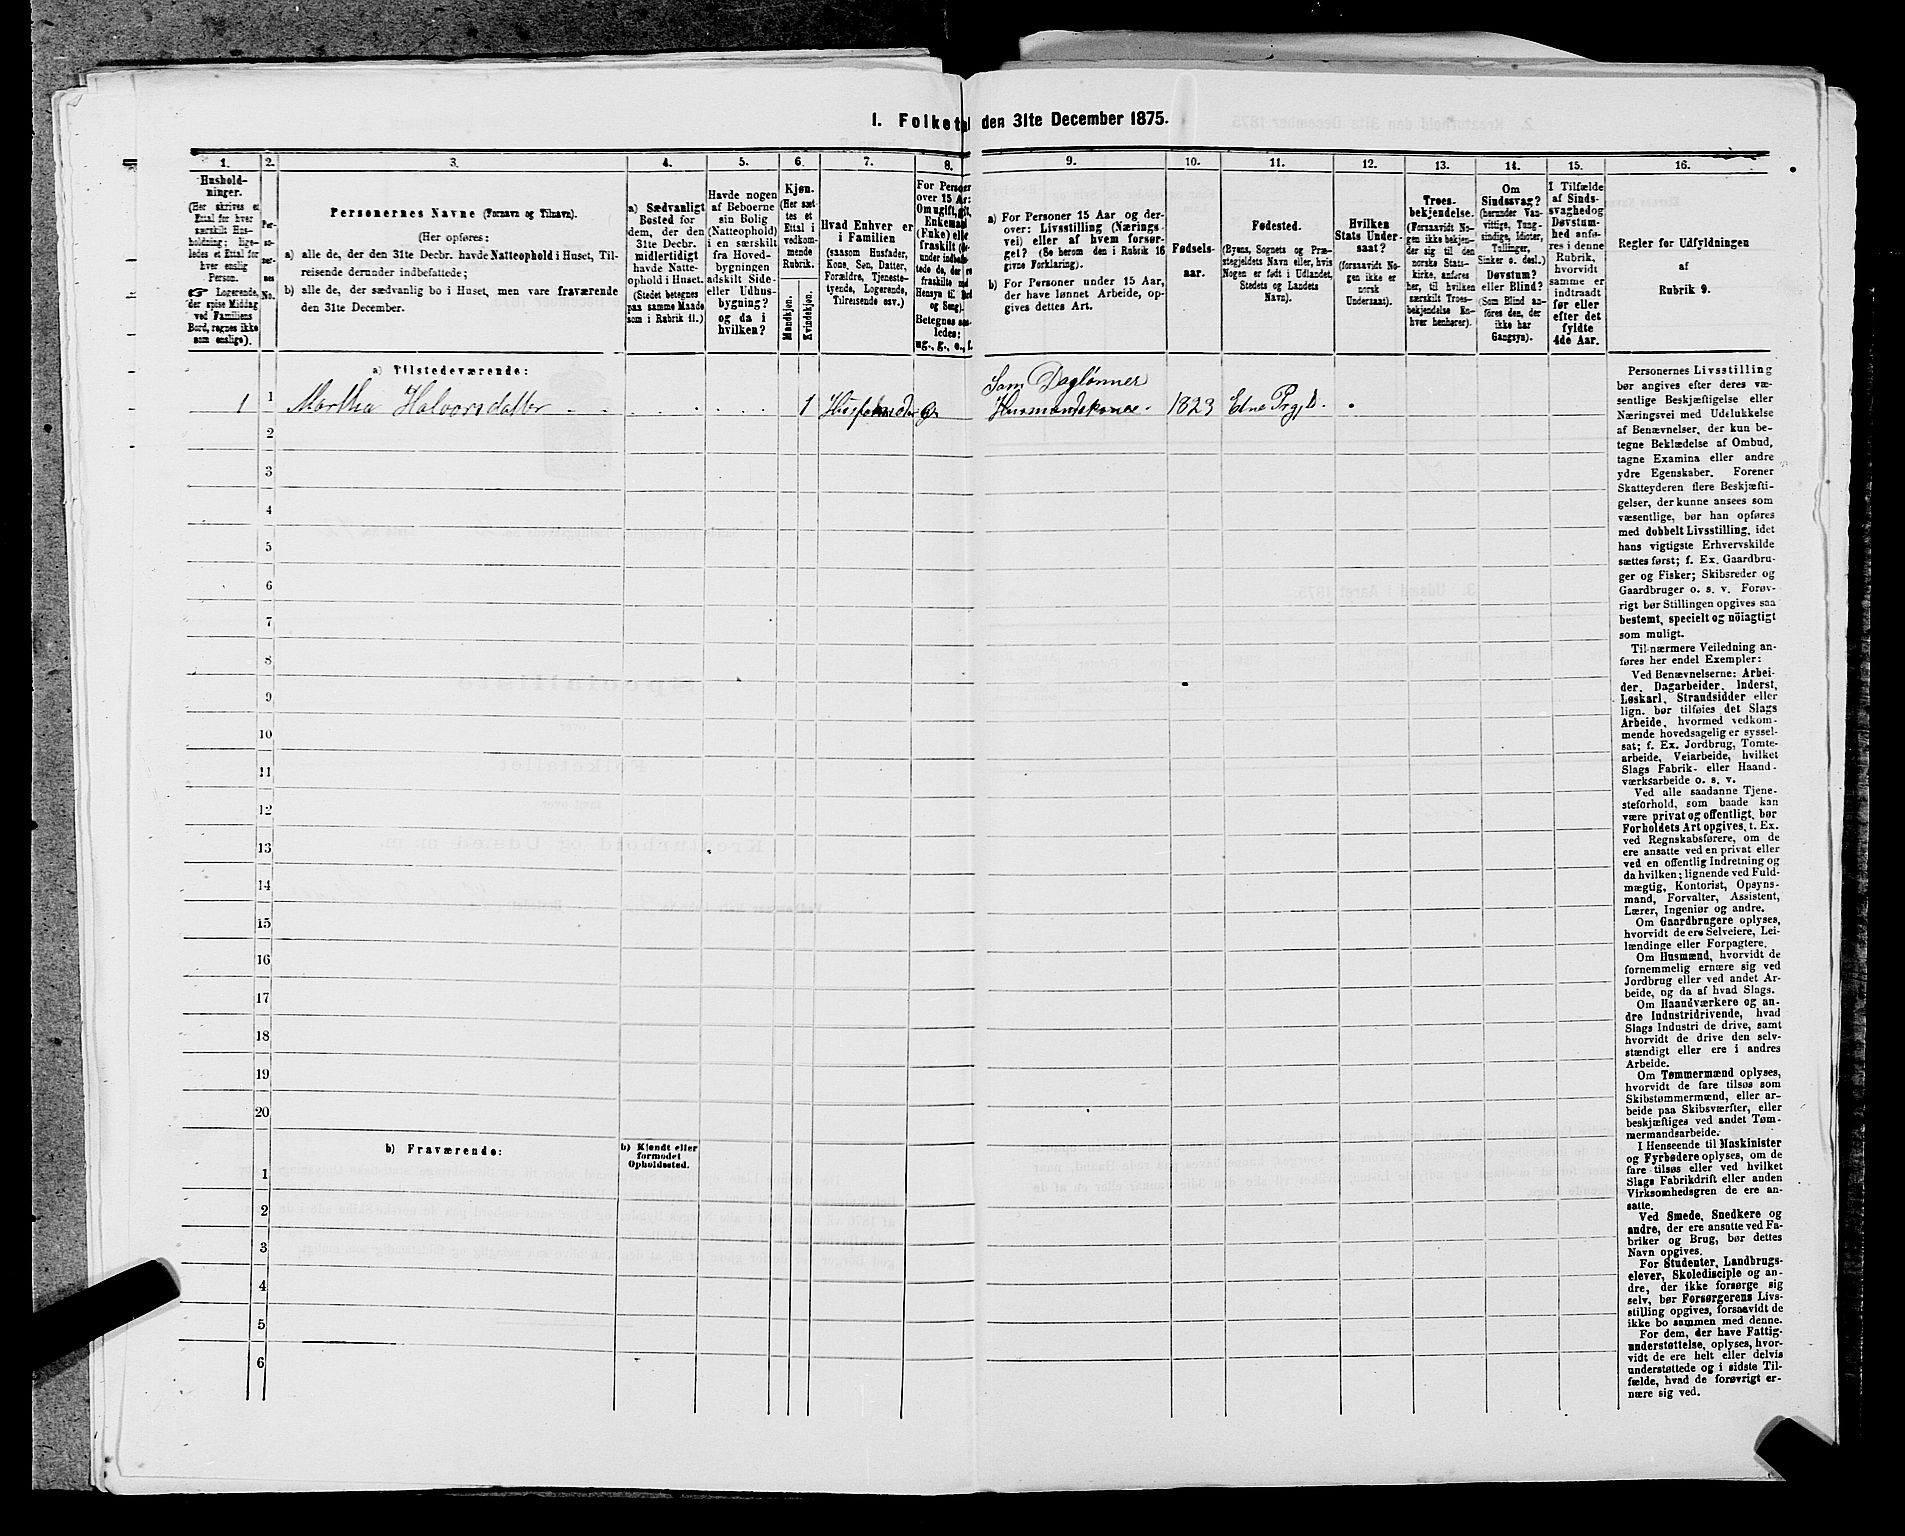 I. Folketal den 31te December 1875.
1.
2.
3.
4.
5.
6.
7.
8.
9.
10.
11.
12.
13.
14.
15.
16.
Hushold-
ninger.
(Her skrives et
Ettal for hver
særskilt Hus-
holdning; lige-
ledes et Ettal for
hver enslig
Person.
☞ Logerende,
der spise Middag
ved Familiens
Bord, regnes ikke
som enslige).
Per-
so-
ner-
nes
No.
Personernes Navne (Fornavn og Tilnavn).
(Her opføres:
a) alle de, der den 31te Decbr. havde Natteophold i Huset, Til-
reisende derunder indbefattede;
b) alle de, der sædvanlig bo i Huset, men vare fraværende
den 31te December.
a) Sædvanligt
Bosted for
dem, der den
31te Decbr.
midlertidigt
havde Natte-
ophold i Huset.
(Stedet betegnes
paa samme Maade
som i Rubrik 11.)
Havde nogen
af Beboerne
sin Bolig
(Natteophold)
i en særskilt
fra Hoved-
bygningen
adskilt Side-
eller Udhus-
bygning?
og da i
hvilken?
Kjøn.
(Her sæt-
tes et
Ettal i
vedkom-
mende
Rubrik.
Mandkjøn.
Kvindekjøn.
Hvad Enhver er
i Familien
(saasom Husfader,
Kone, Søn, Datter,
Forældre, Tjeneste-
tyende, Logerende,
Tilreisende osv.)
For Person
over 15 Aar:
Om ugift, gift,
Enkemand
(Enke) eller
fraskilt
Betegnes saa-
ledes:
ug., g., e., f.
a) For Personer 15 Aar og der-
over: Livsstilling (Nærings-
vei) eller af hvem forsør-
get? (Se herom den i Rubrik 16
givne Forklaring).
b) For Personer under 15 Aar,
der have lønnet Arbeide, op-
gives dettes Art.
Fødsels-
aar.
Fødested.
(Byens, Sognets og Præ-
stegjeldets Navn eller, hvis
Nogen er født i Udlandet,
Stedets og Landets
Navn).
Hvilken
Stats Under-
saat?
(forsaavidt No-
gen ikke er
norsk
Undersaat).
Troes-
bekjendelse.
(Forsaavidt No-
gen ikke bekjen-
der sig til den
norske Stats-
kirke, anføres
her, til hvilken
særskilt Troes-
bekjendelse En-
hver henhører).
Om
Sindssvag?
(herunder Van-
vittige, Tung-
sindige, Idioter,
Tullinger,
Sinker o. desl.).
Døvstum?
eller Blind?
(Som Blind an-
føres den, der
ikke har
Gangsyn).
I Tilfælde
af Sinds-
svaghed og
Døvstum-
hed anfø-
res i denne
Rubrik,
hvorvidt
samme er
indtraadt
før eller
efter det
fyldte
4de Aar.
Regler for Udfyldningen
af
Rubrik 9.
a) Tilstedeværende:
Som Daglønner
1 1 Martha Halvorsdatter 1 Husfad G Husmandskone. 1823 Etne Prgjld.
2
3
4
5
6
7
8
9
10
11
12
13
14
15
16
17
18
19
20
b) Fraværende:
b) Kjendt eller
formodet
Opholdssted.
1
2
3
4
5
6
Personernes Livsstilling
bør angives efter deres væ-
sentlige Beskjæftigelse eller
Næringsvei med Udelukkelse
af Benævnelser, der kun be-
tegne Beklædelse af Ombud,
tagne Examina eller andre
ydre Egenskaber. Forener
Skatteyderen flere Beskjæfti-
gelser, der kunne ansees som
væsentlige, bør han opføres
med dobbelt Livsstilling, idet
hans vigtigste Erhvervskilde
sættes først; f. Ex. Gaardbru-
ger og Fisker; Skibsreder og
Gaardbruger o. s. v. Forøv-
rigt bør Stillingen opgives saa
bestemt, specielt og nöiagtigt
som muligt.
Til nærmere Veiledning an-
føres her endel Exempler:
Ved Benævnelserne: Arbei-
der, Dagarbeider, Inderst,
Løskarl, Strandsidder eller
lign. bør tilføies det Slags
Arbeide, hvormed vedkom-
mende hovedsagelig er syssel-
sat; f. Ex. Jordbrug, Tomte-
arbeide, Veiarbeide, hvilket
Slags Fabrik- eller Haand-
værksarbeide o. s. v.
Ved alle saadanne Tjene-
steforhold, som baade kan
være privat og offentligt, bør
Forholdets Art opgives, t. Ex.
ved Regnskabsførere, om de
ere ansatte ved en privat eller
ved en offentlig Indretning og
da hvilken; lignende ved Fuld-
mægtig, Kontorist, Opsyns-
mand, Forvalter, Assistent,
Lærer, Ingeniør og andre.
Om Gaardbrugere oplyses,
hvorvidt de ere Selveiere, Lei-
lændinge eller Forpagtere.
Om Husmænd, hvorvidt de
fornemmelig ernære sig ved
Jordbrug eller ved andet Ar-
beide, og da af hvad Slags.
Om Haandværkere og an-
dre Industridrivende, hvad
Slags Industri de drive, samt
hvorvidt de drive den selv-
stændigt eller ere i andres
Arbeide.
Om Tømmermænd oplyses,
hvorvidt de fare tilsøs som
Skibstømmermænd, eller ar-
beide paa Skibsværfter, eller
beskjæftiges ved andet Tøm-
mermandsarbeide.
I Henseende til Maskinister
og Fyrbødere oplyses, om de
fare tilsøs eller ved hvilket
Slags Fabrikdrift eller anden
Virksomhedsgren de ere an-
satte.
Ved Smede, Snedkere og
andre, der ere ansatte ved Fa-
briker og Brug, bør dettes
Navn opgives.
For Studenter, Landbrugs-
elever, Skoledisciple og an-
dre, der ikke forsørge sig
selv, bør Forsørgerens Livs-
stilling opgives, forsaavidt de
ikke bo sammen med denne.
For dem, der have Fattig-
understøttelse, oplyses, hvor-
vidt de ere helt eller delvis
understøttede og i sidste Til-
fælde, hvad de forøvrigt er-
nære sig ved.